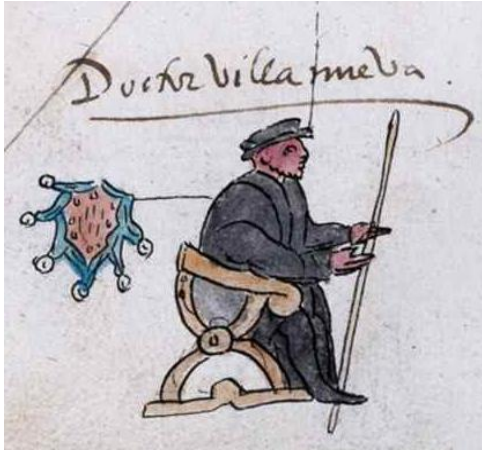 Doctor Villa nueva.